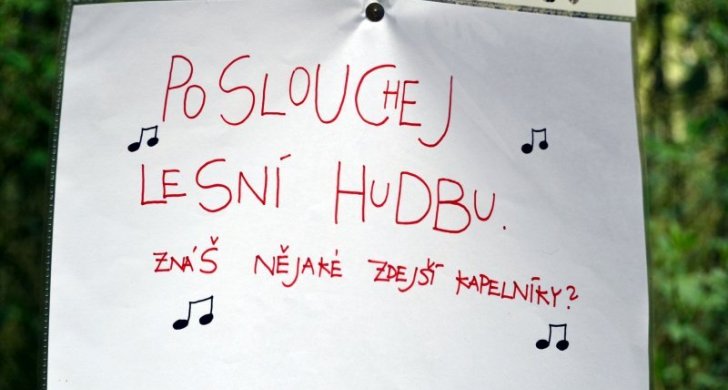 POSLOUCHEJ
LESNÍ HUDBU.
ZNÁŠ NĚJAKÉ ZDEJŠÍ KAPELNÍKY?